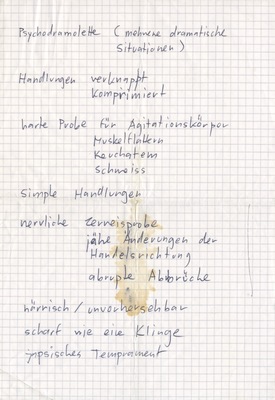 Psychodramolette (mehrere dramatische
Situationen)
Handlungen verknappt
komprimiert
harte Probe für Agitationskörper
Muskelflattern
Keuchatem
Schweiss
simple Handlungen
nervliche Zerreisprobe
jähe Änderungen der
Handelsrichtung
abrupte Abbrüche
närrisch / unvorhersehbar
scharf wie eine Klinge
Temprament